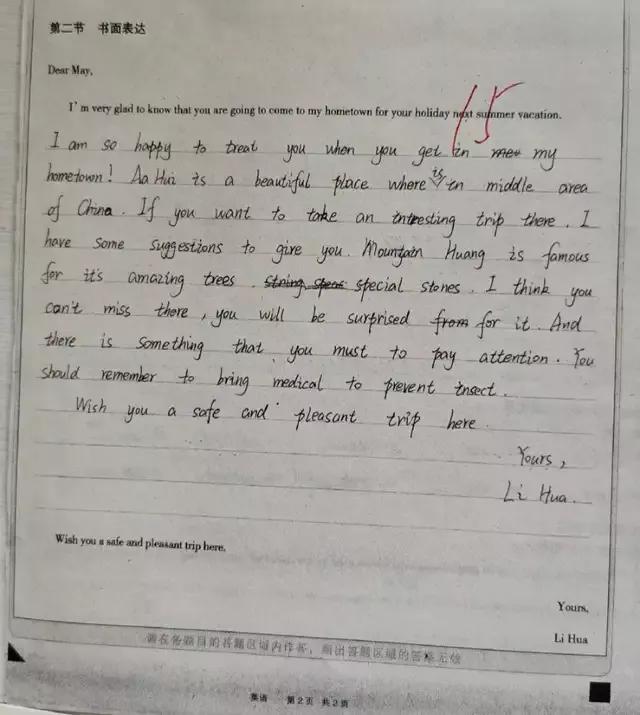 第二节 书面表达
Dear May,
I'm very glad to know that you are going to come to my hometown for your holiday next summer vacation.
15
I am so happy to treat you when you get in my
hometown! Aa Hui is a beautiful place where is in middle area
of China. If you want to take an intresting trip there. I
have some suggestions to give you. Mountain Huang is famous
for it's amazing trees. special stones. I think you
can't miss there, you will be surprised from for it. And
there is something that you must to pay attention. You
should remember to bring medical to prevent insect.
Wish you a safe and pleasant trip here.
Yours,
Li Hua.
Wish you a safe and pleasant trip here.
Yours,
Li Hua
请在各题目的答题区域内作答，超出答题区域的答案无效
英语 第2页 共2页